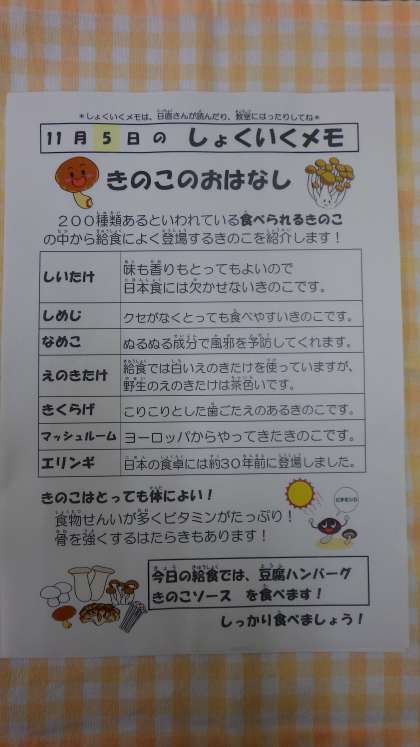 ＊しょくいくメモは、日直さんが読んだり、教室にはったりしてね＊
11 月 5 日 の しょくいくメモ
きのこのおはなし
２００種類あるといわれている食べられるきのこ
の中から給食によく登場するきのこを紹介します！
しいたけ 味も香りもとってもよいので
日本食には欠かせないきのこです。
しめじ クセがなくとっても食べやすいきのこです。
なめこ ぬるぬる成分で風邪を予防してくれます。
えのきたけ 給食では白いえのきたけを使っていますが、
野生のえのきたけは茶色いです。
きくらげ こりこりとした歯ごたえのあるきのこです。
マッシュルーム ヨーロッパからやってきたきのこです。
エリンギ 日本の食卓には約30年前に登場しました。
きのこはとっても体によい！
食物せんいが多くビタミンがたっぷり！
骨を強くするはたらきもあります！
ビタミンD
今日の給食では、豆腐ハンバーグ
きのこソース を食べます！
しっかり食べましょう！